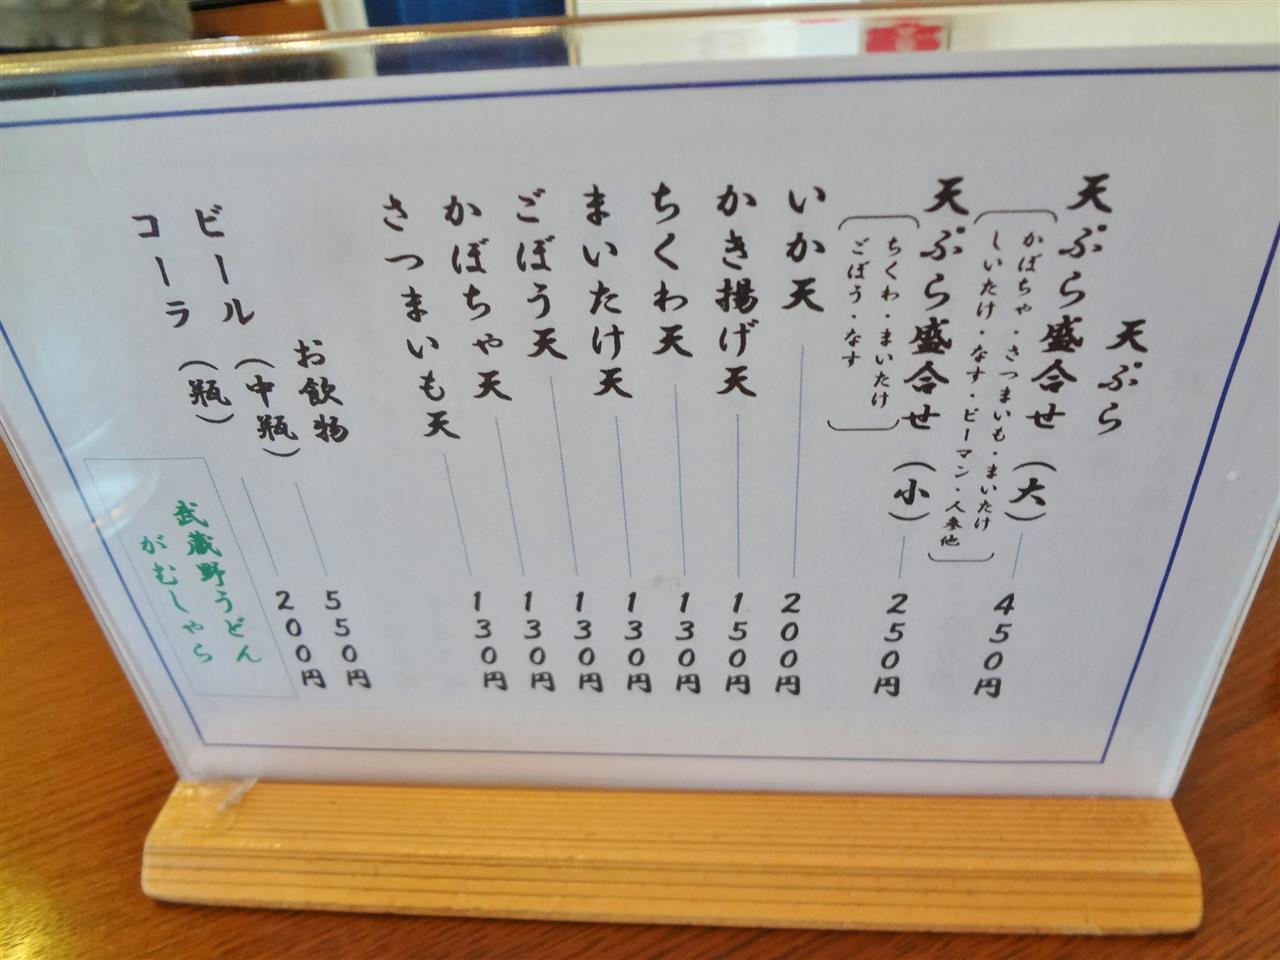 天ぷら
天ぷら盛合せ（大） 450円
かぼちゃ・さつまいも・まいたけ
しいたけ・なす・ピーマン・人参他
天ぷら盛合せ（小） 250円
ちくわ・まいたけ
ごぼう・なす
いか天 200円
かき揚げ天 150円
ちくわ天 130円
まいたけ天 130円
ごぼう天 130円
かぼちゃ天 130円
さつまいも天 130円
お飲物
ビール（中瓶） 550円
コーラ（瓶） 200円
武蔵野うどん
がむしゃら